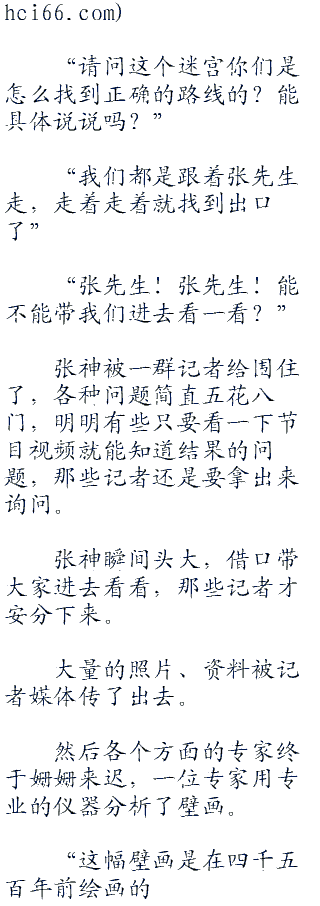 hci66.com)
“请问这个迷宫你们是
怎么找到正确的路线的？能
具体说说吗？”
“我们都是跟着张先生
走，走着走着就找到出口
了”
“张先生！张先生！能
不能带我们进去看一看？”
张神被一群记者给围住
了，各种问题简直五花八
门，明明有些只要看一下节
目视频就能知道结果的问
题，那些记者还是要拿出来
询问。
张神瞬间头大，借口带
大家进去看看，那些记者才
安分下来。
大量的照片、资料被记
者媒体传了出去。
然后各个方面的专家终
于姗姗来迟，一位专家用专
业的仪器分析了壁画。
“这幅壁画是在四千五
百年前绘画的